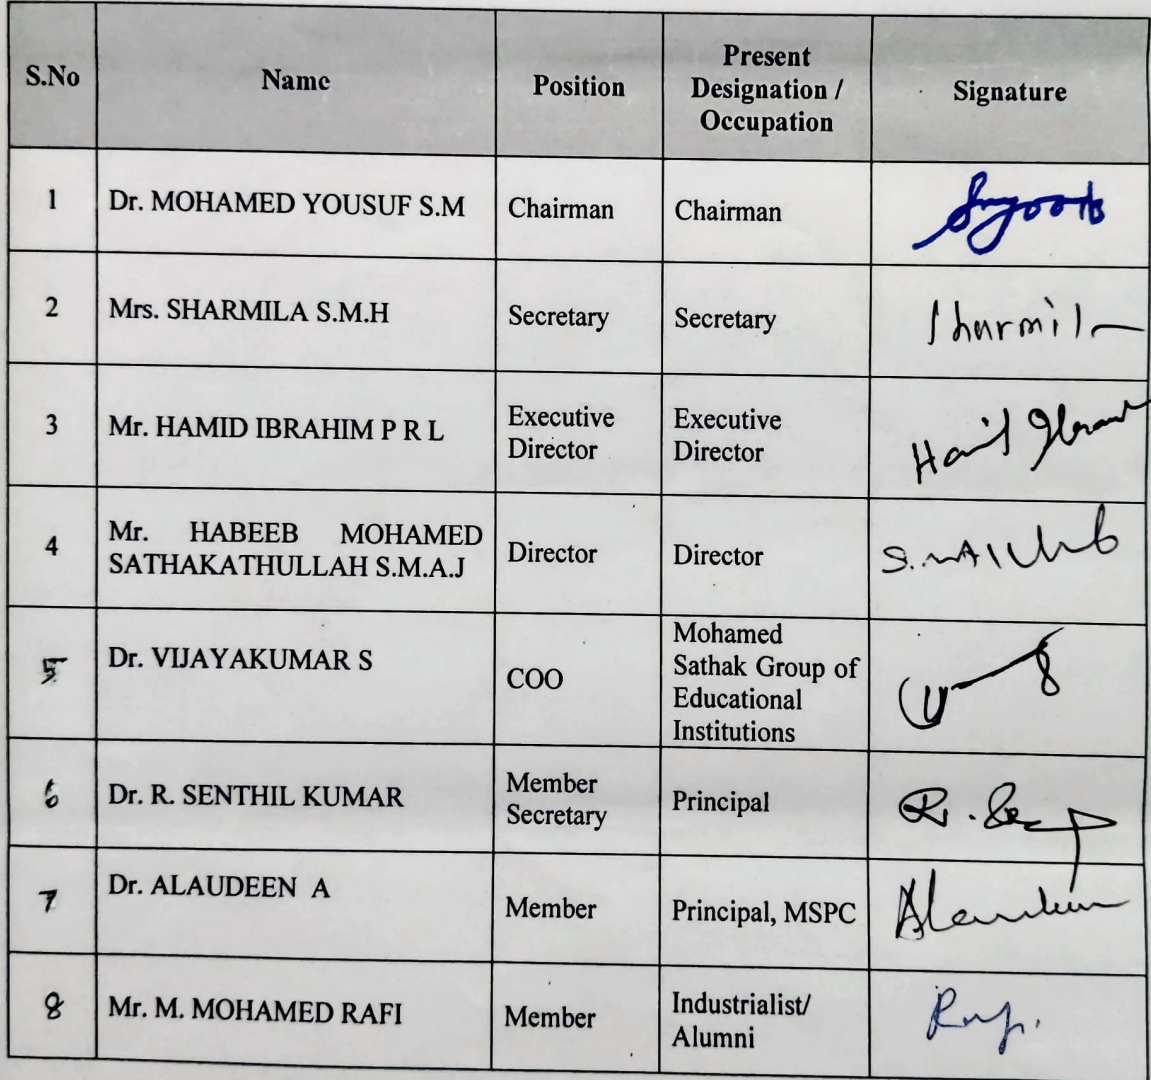 S.No Name Position Present Designation / Occupation Signature
1 Dr. MOHAMED YOUSUF S.M Chairman Chairman
2 Mrs. SHARMILA S.M.H Secretary Secretary Sharmila
3 Mr. HAMID IBRAHIM P R L Executive Director Executive Director
4 Mr. HABEEB MOHAMED SATHAKATHULLAH S.M.A.J Director Director
5 Dr. VIJAYAKUMAR S COO Mohamed Sathak Group of Educational Institutions
6 Dr. R. SENTHIL KUMAR Member Secretary Principal
7 Dr. ALAUDEEN A Member Principal, MSPC
8 Mr. M. MOHAMED RAFI Member Industrialist/ Alumni